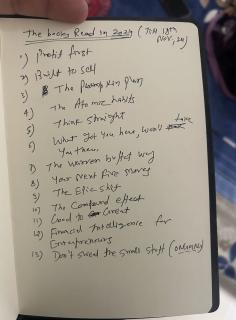 The books Read in 2024 (Till 18th Nov, 24)
1) Profit first
2) Built to sell
3) The Pumpkin Plan
4) The Atomic habits
5) Think straight
6) What got you here, won't take
you there,
7) The Warren buffet way
8) Your next five moves
9) The Epic shit
10) The Compound effect
11) Good to Great
12) Financial Intelligence for
Entrepreneurs
13) Don't sweat the small stuff (